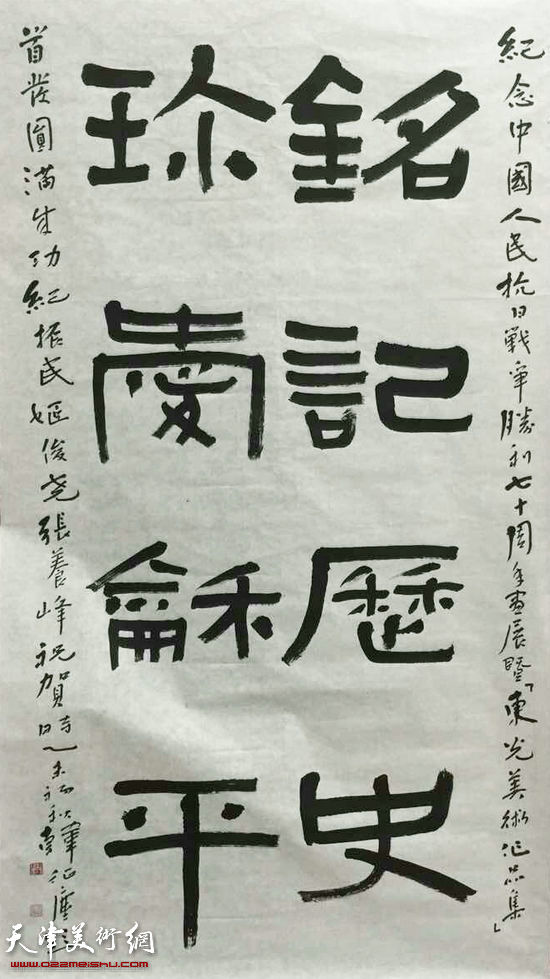 紀念中國人民抗日戰爭勝利七十周年畫展暨「東光美術作品集」
銘記歷史
珍愛龢平
首發圓滿成功紀振民姬俊堯張養峰祝賀時乙未初秋
天津美術網
www.022meishu.com